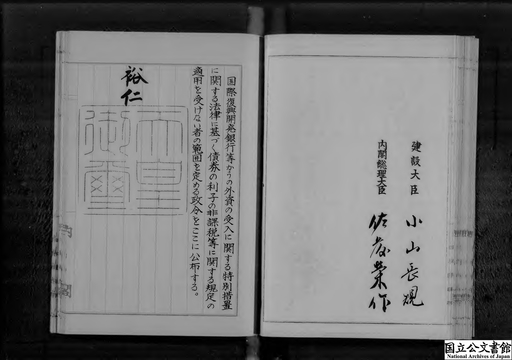 国際復興開発銀行等からの外資の受入に関する特別措置
に関する法律に基づく債券の利子の非課税等に関する規定の
適用を受けない者の範囲を定める政令をここに公布する。
裕仁
天皇
御璽
建設大臣 小山長規
内閣総理大臣 佐藤榮作
国立公文書館
National Archives of Japan